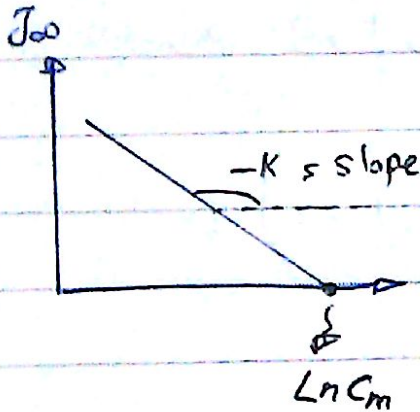 J∞
-K = slope
Ln Cm